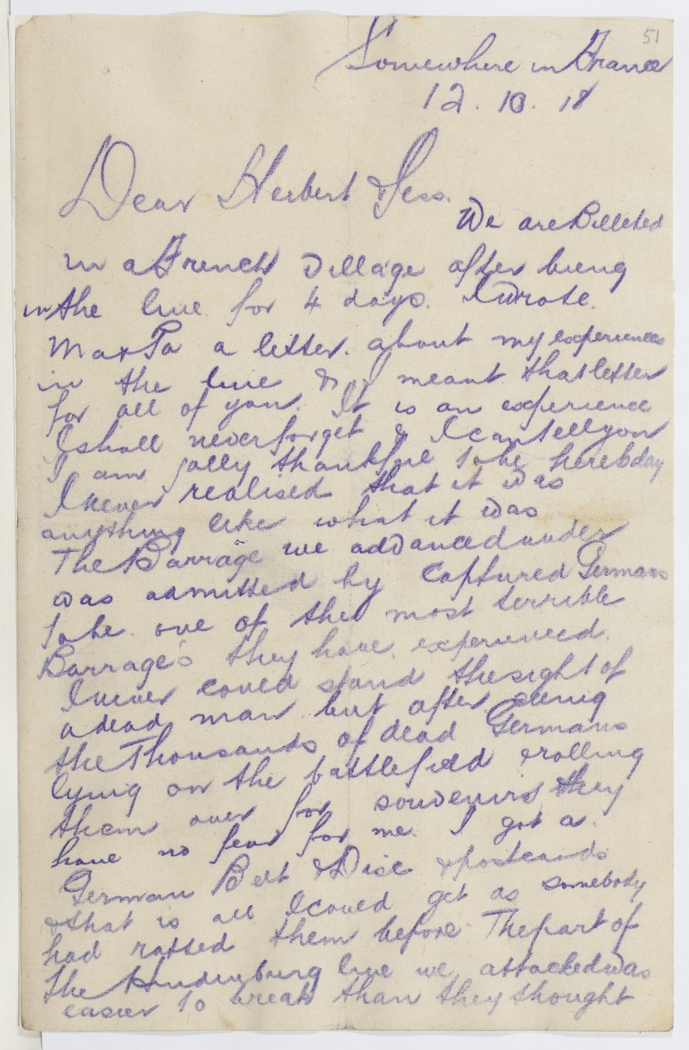 51
Somewhere in France
12. 10. 18
Dear Herbert & Jess.
We are Billeted
in a French Village after being
in the line for 4 days. I wrote.
Ma & Pa a letter. about my experiences
in the line & I meant that letter
for all of you. It is an experience
I shall never forget & I can tell you
I am jolly thankful to be here to day
I never realised that it was
anything like what it was
The Barrage we advanced under
was admitted by captured Germans
to be one of the most terrible
Barrage's they have experienced.
I never could stand the sight of
a dead man but after seeing
the Thousands of dead Germans
lying on the battlefield & rolling
them over for souvenirs they
have no fear for me. I got a.
German Belt & Disc & postcards
& that is all I could get as somebody
had ratted them before The part of
the Hindenburg line we attacked was
easier to break than they thought